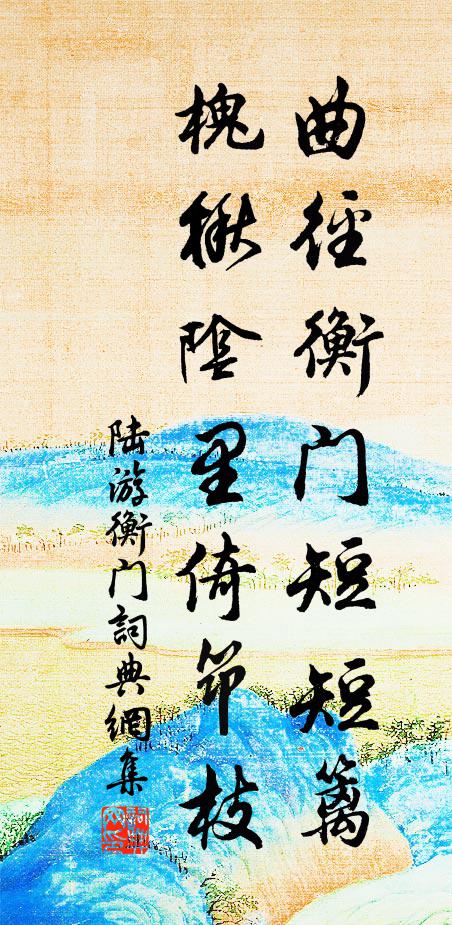 曲径衡门短短篱
槐楸陰里倚筇枝
陆游衡门詞典網集